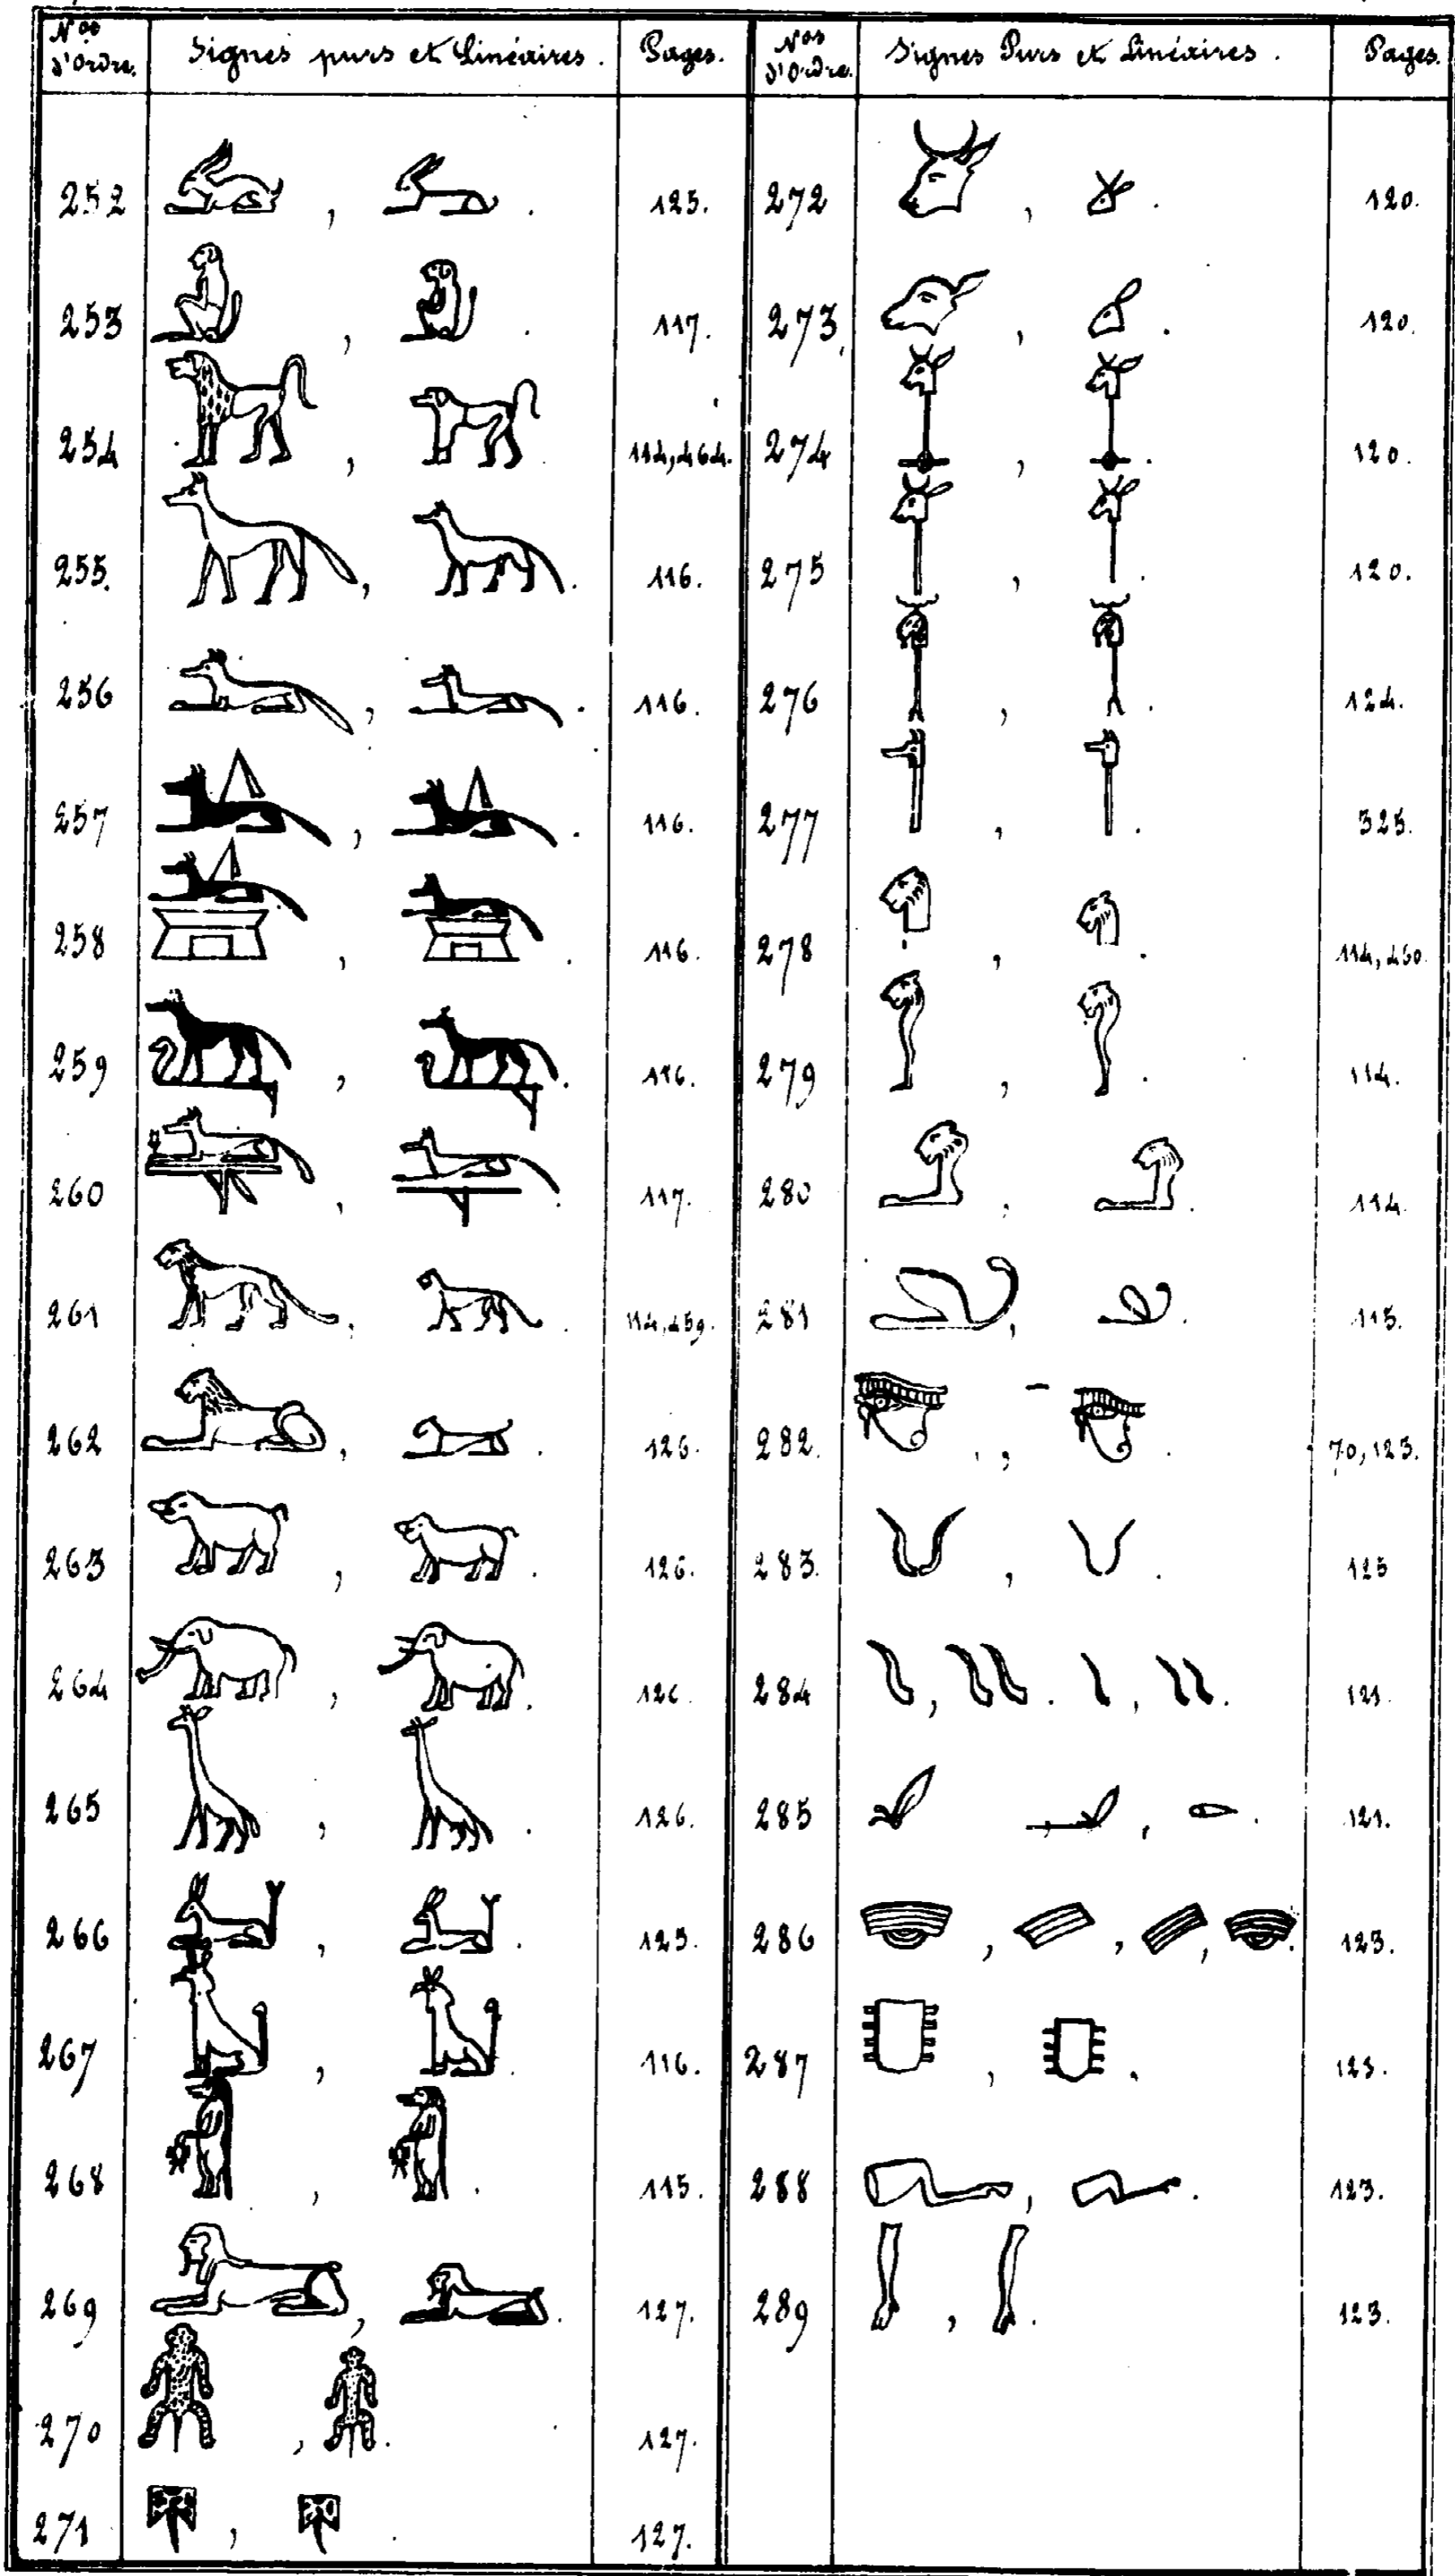 Nos d'Ordre. Signes purs et Linéaires. Pages.
252 , . 125.
253 , . 117.
254 , 114, 464.
255. , . 116.
256 , . 116.
257 , . 116.
258 , . 116.
259 , . 116.
260 , . 117.
261 , . 114, 459.
262 , . 126.
263 , . 126.
264 , . 126.
265 , . 126.
266 , .
267 , . 116.
268 , . 115.
269 , . 127.
270 , . 127.
271 , . 127.
Nos d'Ordre. Signes Purs et Linéaires. Pages.
272 , . 120.
273 , . 120.
274 , . 120.
275 , . 120.
276 , . 124.
277 , . 325.
278 , . 114, 460.
279 , . 114.
280 , . 114.
281 , . 115.
282. , . 70, 123.
283. , .
284 , . , . 121.
285 , . 121.
286 , , , . 123.
287 , . 123.
288 , . 123.
289 , . 123.